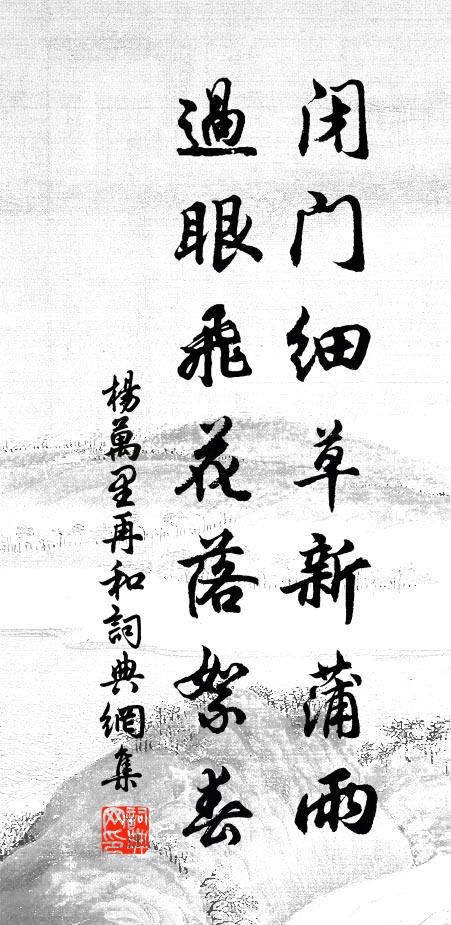 闭门细草新蒲雨
過眼飛花落絮春
楊萬里再和詞典網集